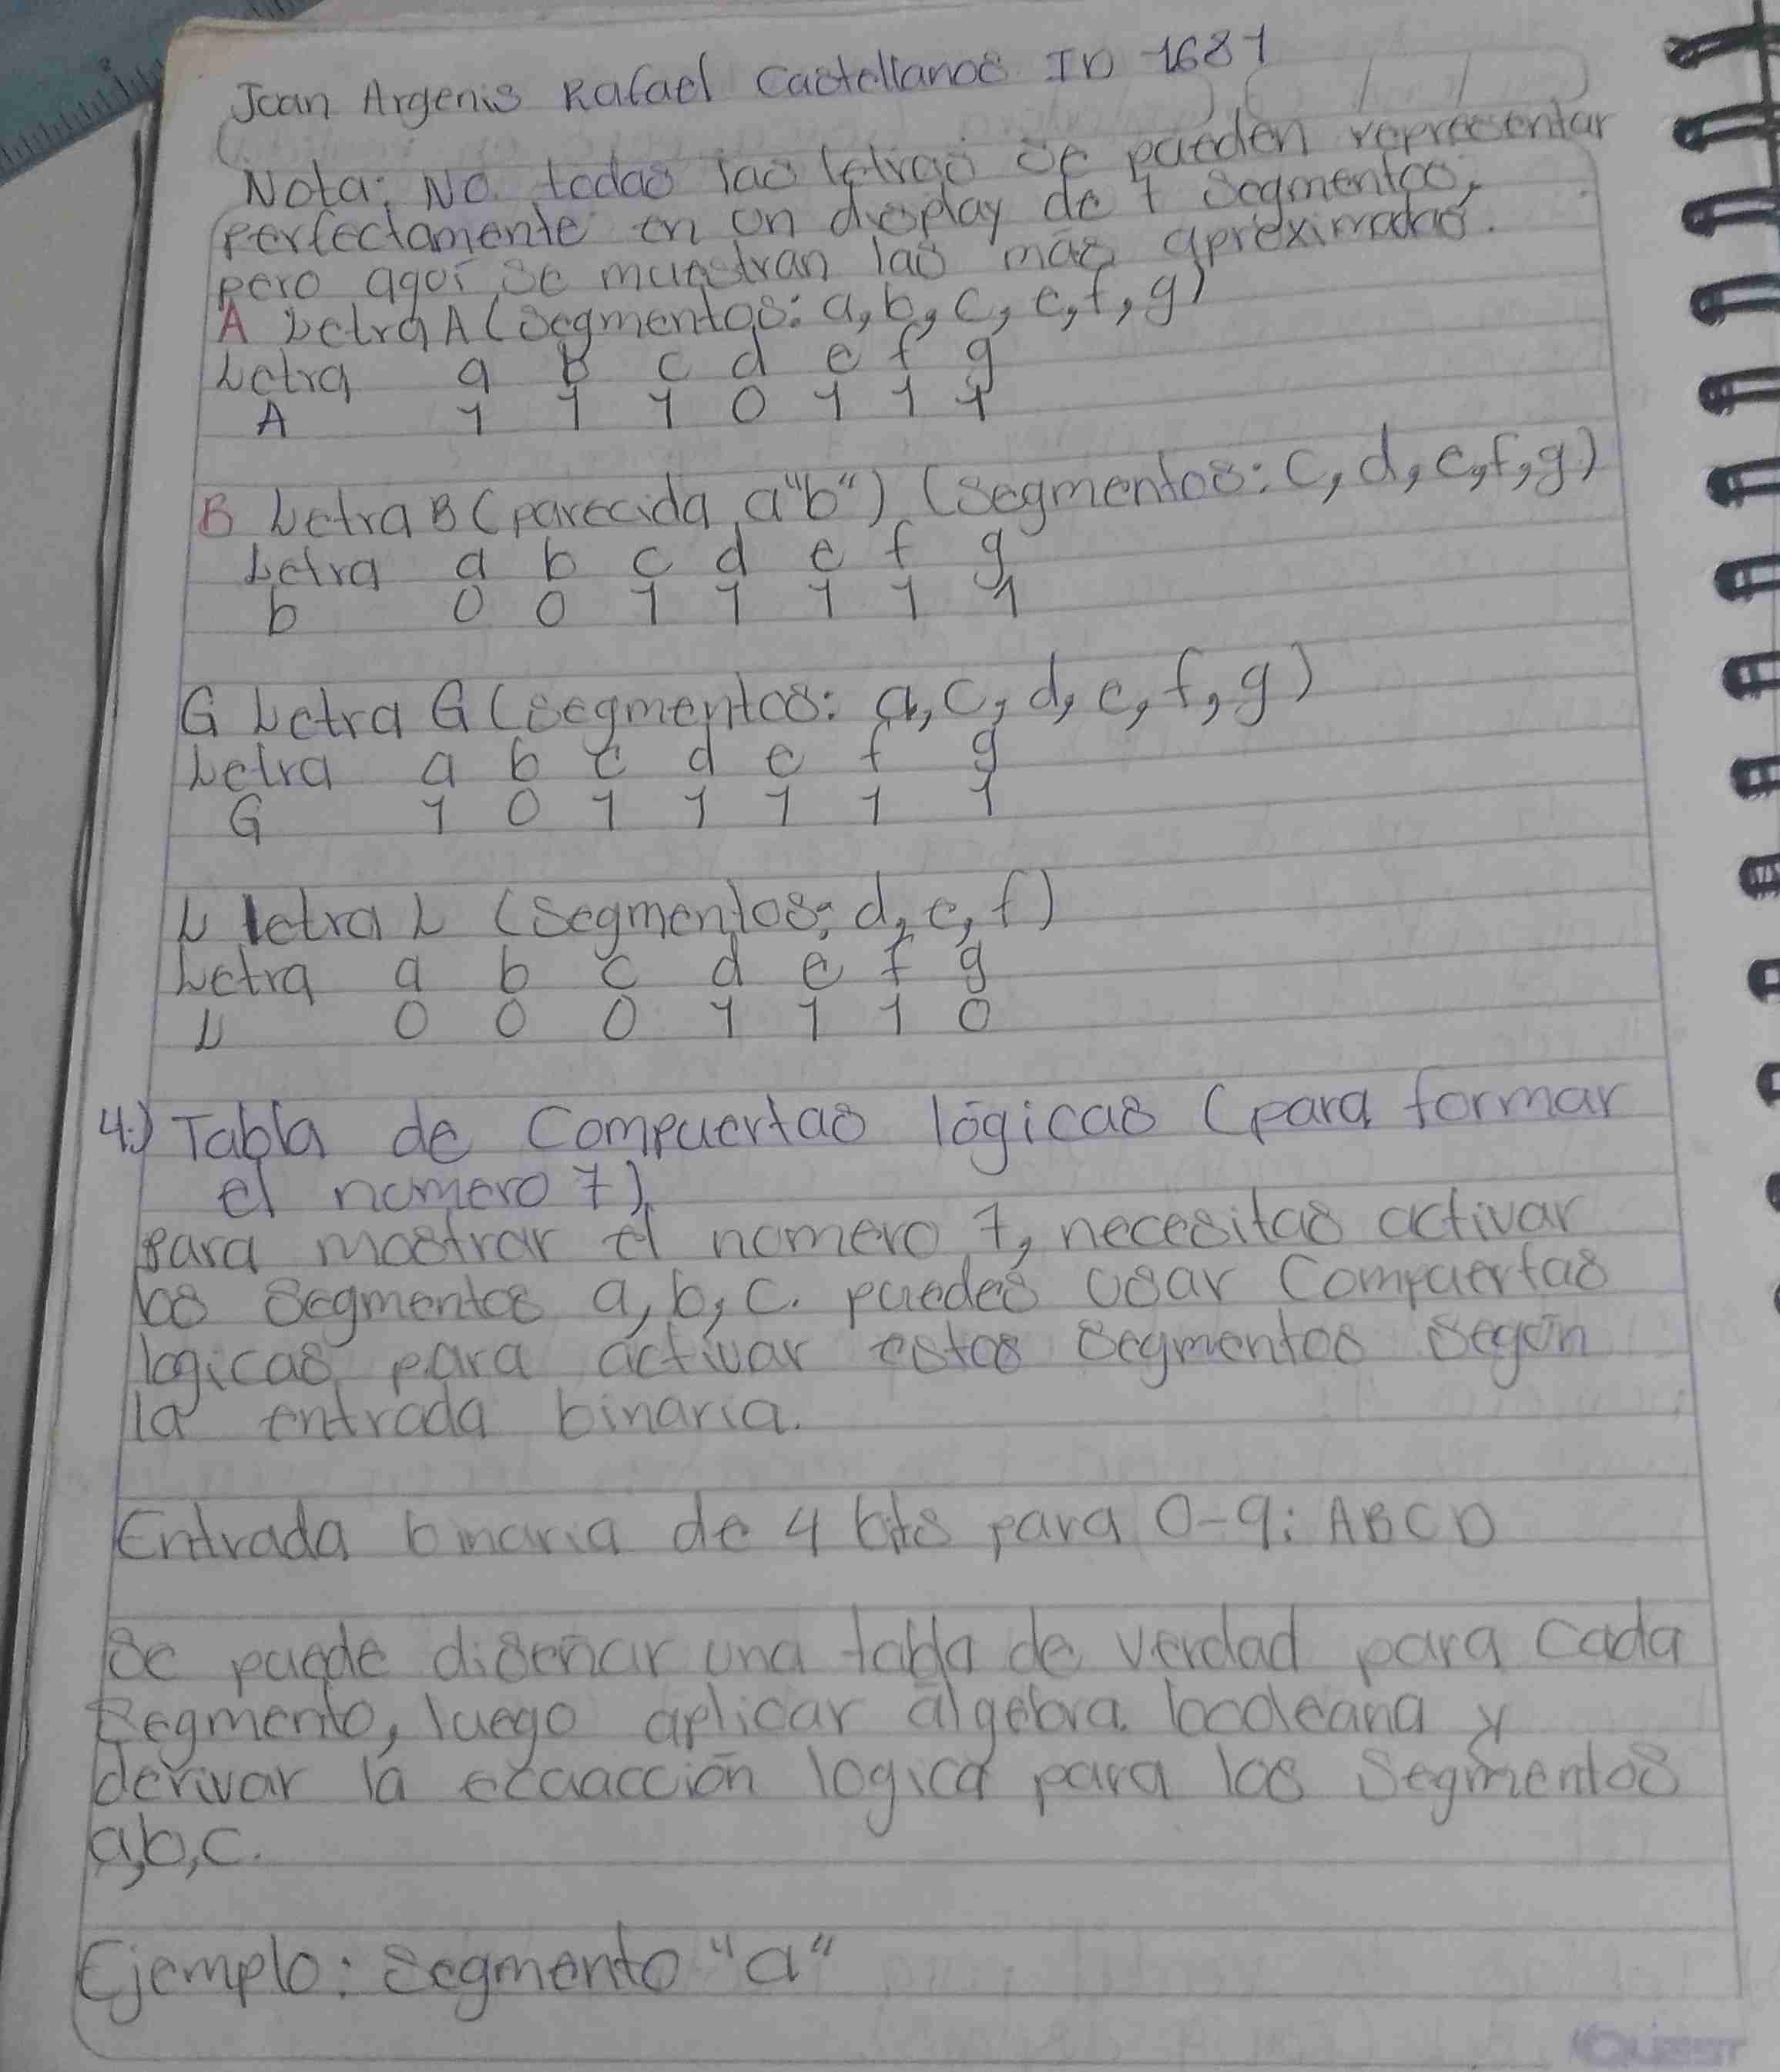 Joan Argenis Rafael Castellanos ID 1681
Nota: No todas las letras se pueden representar
perfectamente en un display de 7 segmentos,
pero aqoí se muestran las más apreximadas.
A Letra A (segmentos: a, b, c, e, f, g)
Letra a b c d e f g
A 1 1 1 0 1 1 1
B Letra B (parecida a "b") (segmentos: c, d, e, f, g)
Letra a b c d e f g
b 0 0 1 1 1 1 1
G Letra G (segmentos: a, c, d, e, f, g)
Letra a b c d e f g
G 1 0 1 1 1 1 1
L letra L (segmentos: d, e, f)
Letra a b c d e f g
L 0 0 0 1 1 1 0
4.) Tabla de Compuertas lógicas (para formar
el numero 7)
para mostrar el numero 7, necesitas activar
los segmentos a, b, c. puedes usar Compuertas
logicas para activar estos segmentos según
la entrada binaria.
Entrada binaria de 4 bits para 0-9: ABCD
Se puede diseñar una tabla de verdad para cada
segmento, luego aplicar álgebra booleana y
derivar la ecuacción logica para los segmentos
a, b, c.
Ejemplo: segmento "a"
QUEST